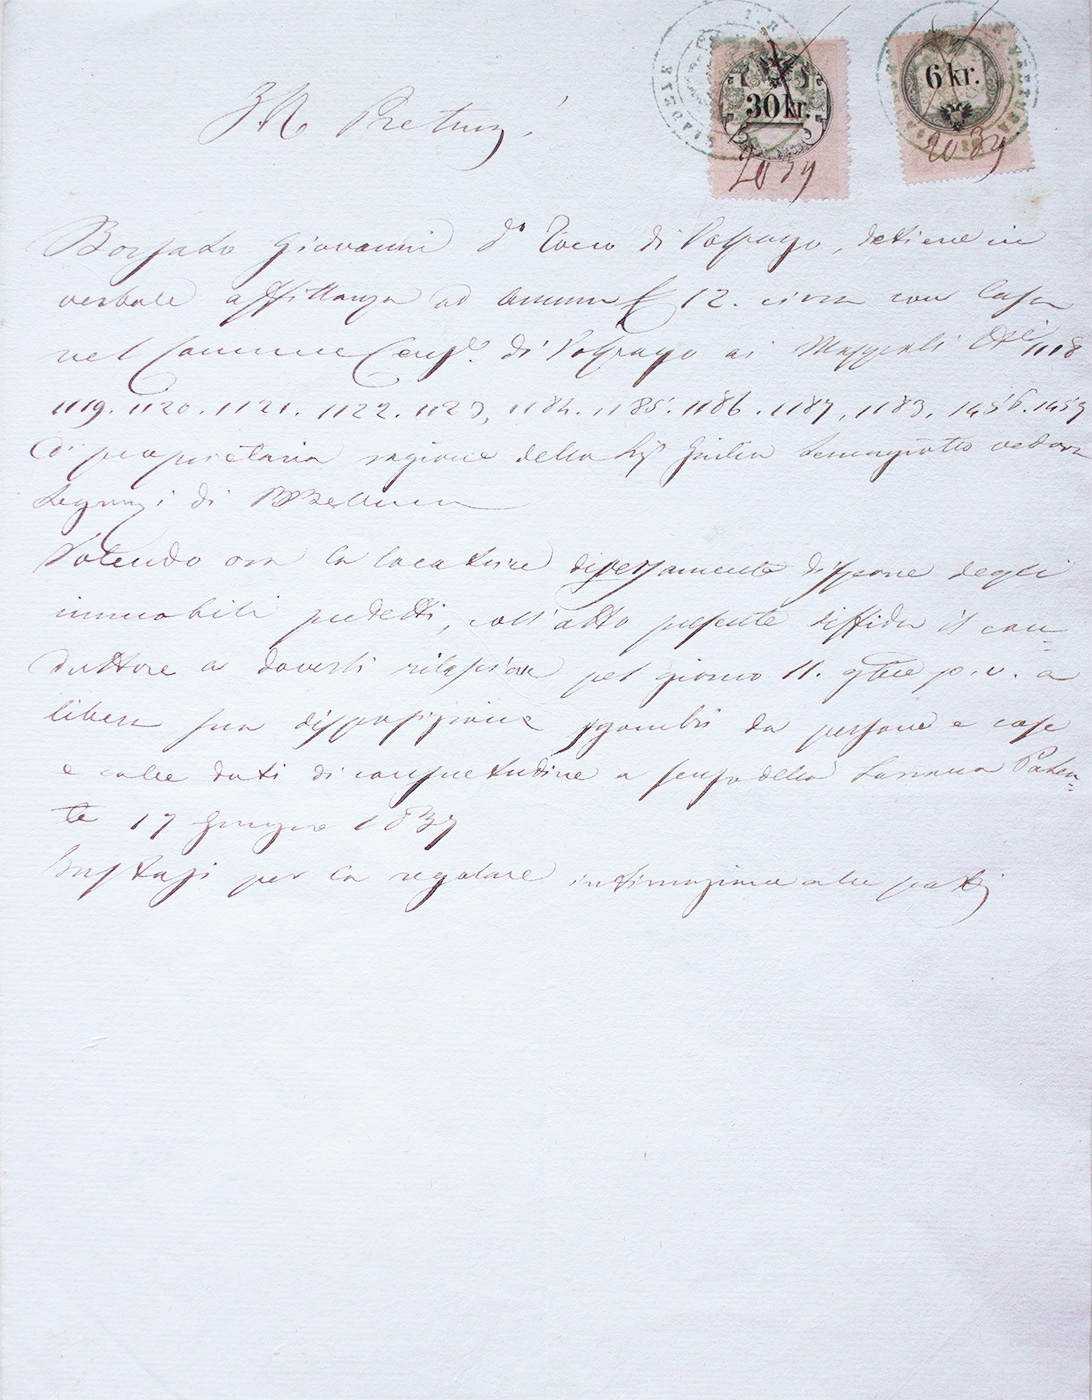 30 kr.
6 kr.
20 39
20 39
I R Pretura!
Borsato Giovanni di Volpago, detiene in
verbale affittanza ad annum 12. circa con Casa
nel Comune Cens. di Volpago ai Mappali 1118
1119. 1120. 1121. 1122. 1123, 1184. 1185. 1186. 1187, 1183, 1456. 1459
di proprietaria ragione della Sig. Giulia vedova
di
Volendo ora la locatrice diversamente disporre degli
immobili predetti, coll'atto presente diffida il con=
duttore a doverli rilasciare pel giorno 11. 9bre p. v. a
libera sua disposizione sgombri da persone e cose
e colle doti di consuetudine a senso della Sovrana Paten=
te 17 Giugno 1837
Bustasi per la regolare intimazione alle parti